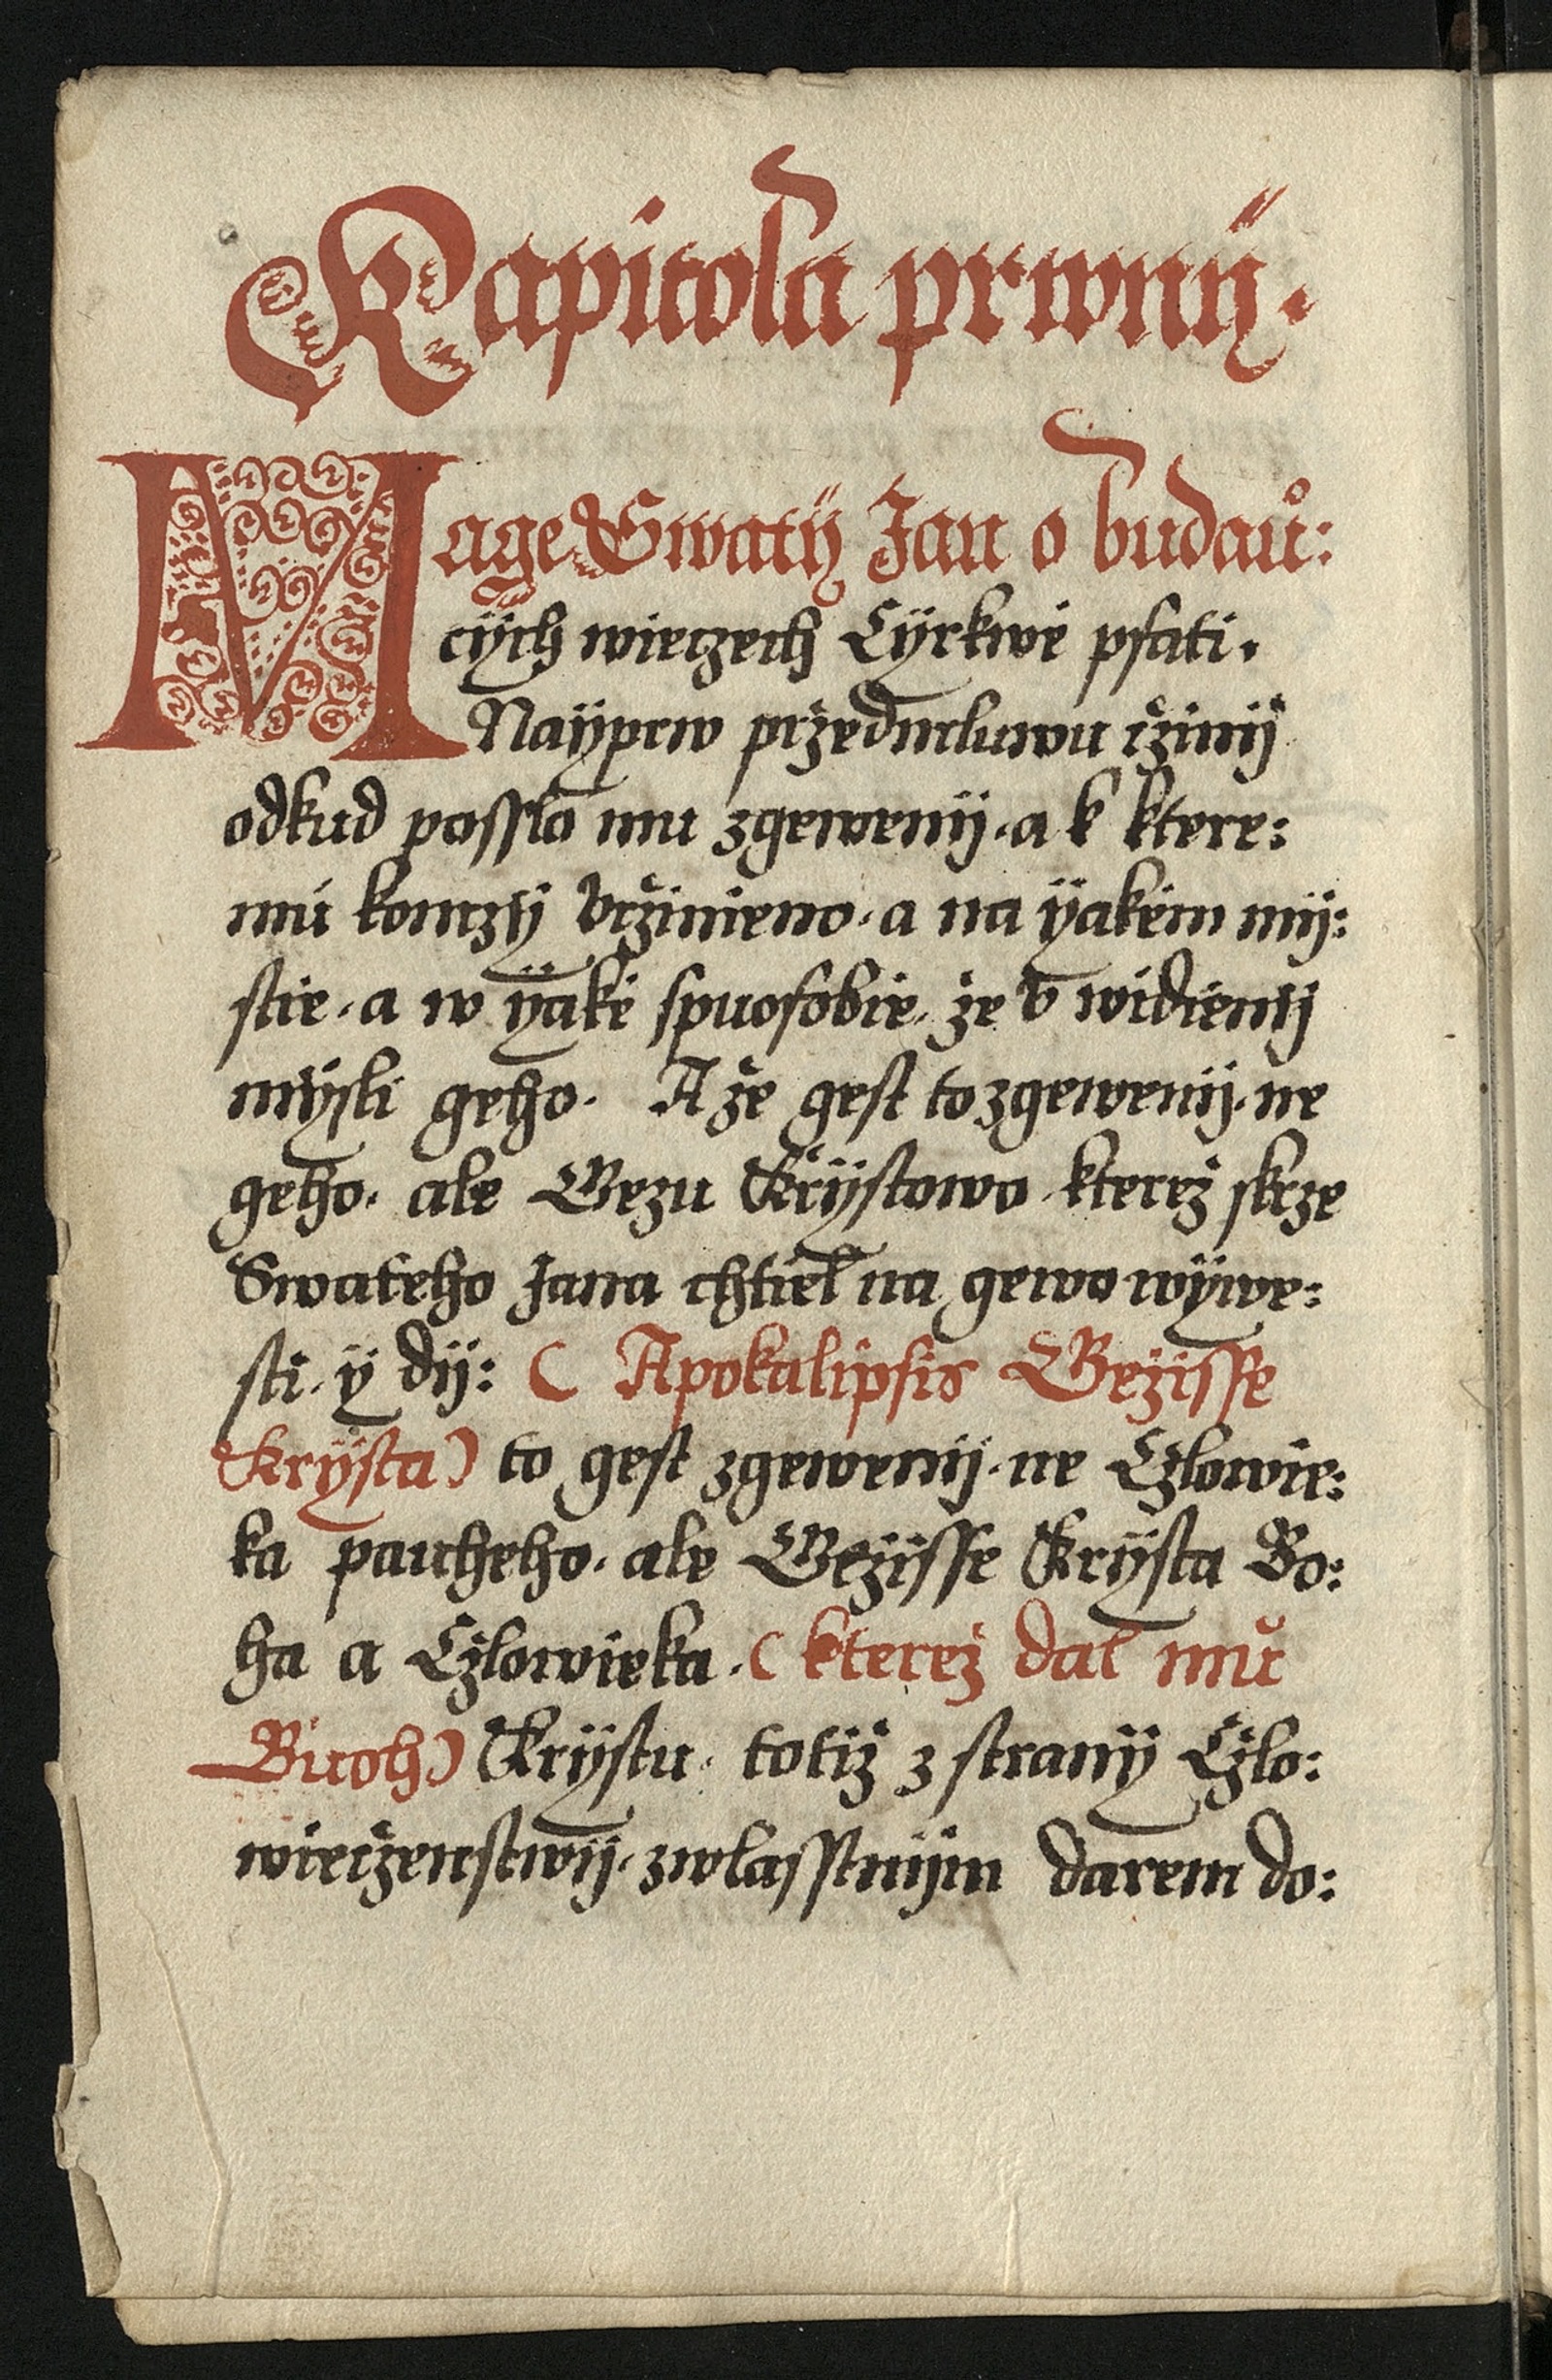 Kapitola prwnij.
Mage Swatij Jan o budaů:
cých wieczech Cýrkwe psati.
Naýprw přzedmluwu čzinij
odkud possla mu zgewenij. a k ktere:
mú konczij včzinieno. a na ýakem mij:
stie. a w ýake spuosobie. že v widienij
mýsli geho. A že gest to zgewenij. ne
geho. ale Gezu Krýstowo kterež skrze
Swateho Jana chtiel na gewo wýwe:
sti. ý dij: ( Apokalipsis Gežisse
Krýsta) to gest zgewenij. ne Čzlowie:
ka paucheho. ale Gežisse Krýsta Bo:
ha a Čzlowieka. ( kterež dal mu
Buoh) Krýstu. totiž z straný Čzlo:
wieczenstwij. zwlasstnijm darem do: